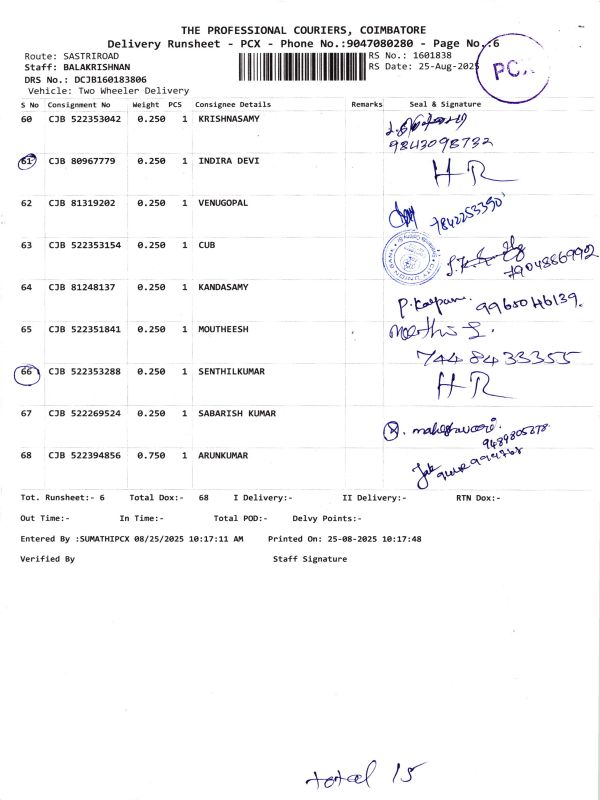 THE PROFESSIONAL COURIERS, COIMBATORE
Delivery Runsheet - PCX - Phone No.:9047080280 - Page No.:6
Route: SASTRIROAD
RS No.: 1601838
Staff: BALAKRISHNAN
RS Date: 25-Aug-2025
PCX
DRS No.: DCJB160183806
Vehicle: Two Wheeler Delivery
S No Consignment No Weight PCS Consignee Details Remarks Seal & Signature
60 CJB 522353042 0.250 1 KRISHNASAMY
9843098732
61 CJB 80967779 0.250 1 INDIRA DEVI HR
62 CJB 81319202 0.250 1 VENUGOPAL 7842253390
63 CJB 522353154 0.250 1 CUB
CITY UNION BANK
7904886992
64 CJB 81248137 0.250 1 KANDASAMY
P. Kalpana. 9965046139.
65 CJB 522351841 0.250 1 MOUTHEESH
7448433355
66 CJB 522353288 0.250 1 SENTHILKUMAR HR
67 CJB 522269524 0.250 1 SABARISH KUMAR
68 CJB 522394856 0.750 1 ARUNKUMAR
Tot. Runsheet:- 6 Total Dox:- 68 I Delivery:- II Delivery:- RTN Dox:-
Out Time:- In Time:- Total POD:- Delvy Points:-
Entered By :SUMATHIPCX 08/25/2025 10:17:11 AM Printed On: 25-08-2025 10:17:48
Verified By Staff Signature
total 15